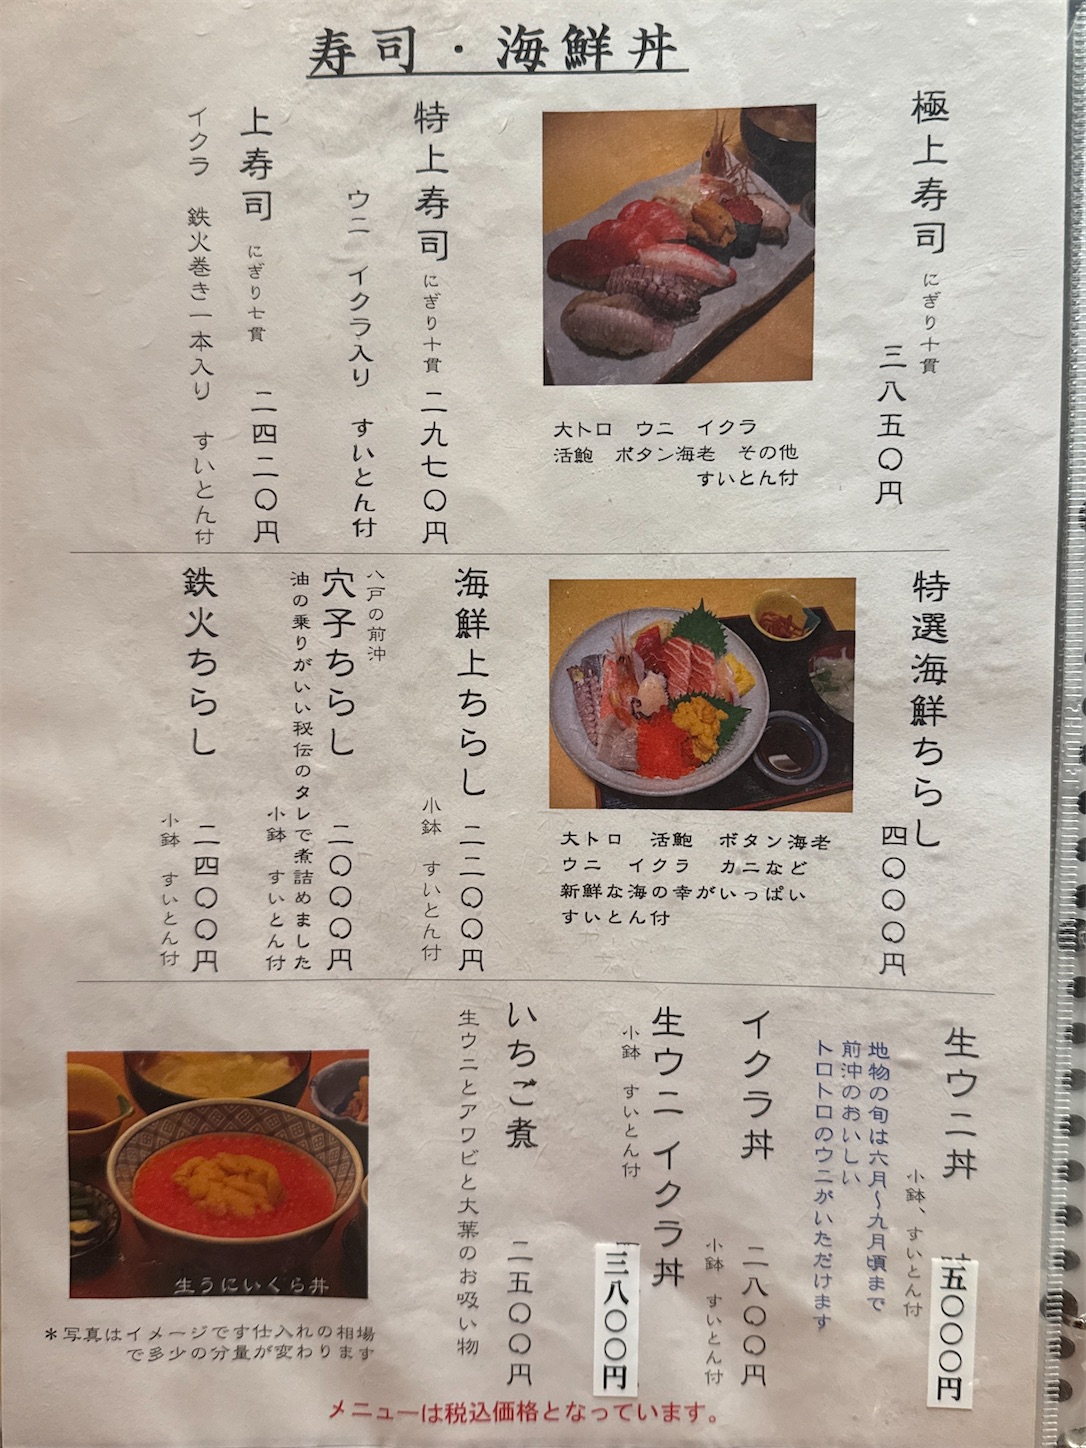 寿司・海鮮丼
極上寿司 にぎり十貫
三八五〇円
大トロ ウニ イクラ
活鮑 ボタン海老 その他
すいとん付
特上寿司 にぎり十貫 二九七〇円
ウニ イクラ入り すいとん付
上寿司 にぎり七貫 二四二〇円
イクラ 鉄火巻き一本入り すいとん付
特選海鮮ちらし
四〇〇〇円
大トロ 活鮑 ボタン海老
ウニ イクラ カニなど
新鮮な海の幸がいっぱい
すいとん付
海鮮上ちらし 二二〇〇円
小鉢 すいとん付
八戸の前沖
穴子ちらし 二〇〇〇円
油の乗りがいい秘伝のタレで煮詰めました
小鉢 すいとん付
鉄火ちらし 二四〇〇円
小鉢 すいとん付
生ウニ丼 五〇〇〇円
小鉢、すいとん付
地物の旬は六月～九月頃まで
前沖のおいしい
トロトロのウニがいただけます
イクラ丼 二八〇〇円
小鉢 すいとん付
生ウニイクラ丼
小鉢 すいとん付
三八〇〇円
いちご煮 二五〇〇円
生ウニとアワビと大葉のお吸い物
生うにいくら丼
＊写真はイメージです仕入れの相場
で多少の分量が変わります
メニューは税込価格となっています。